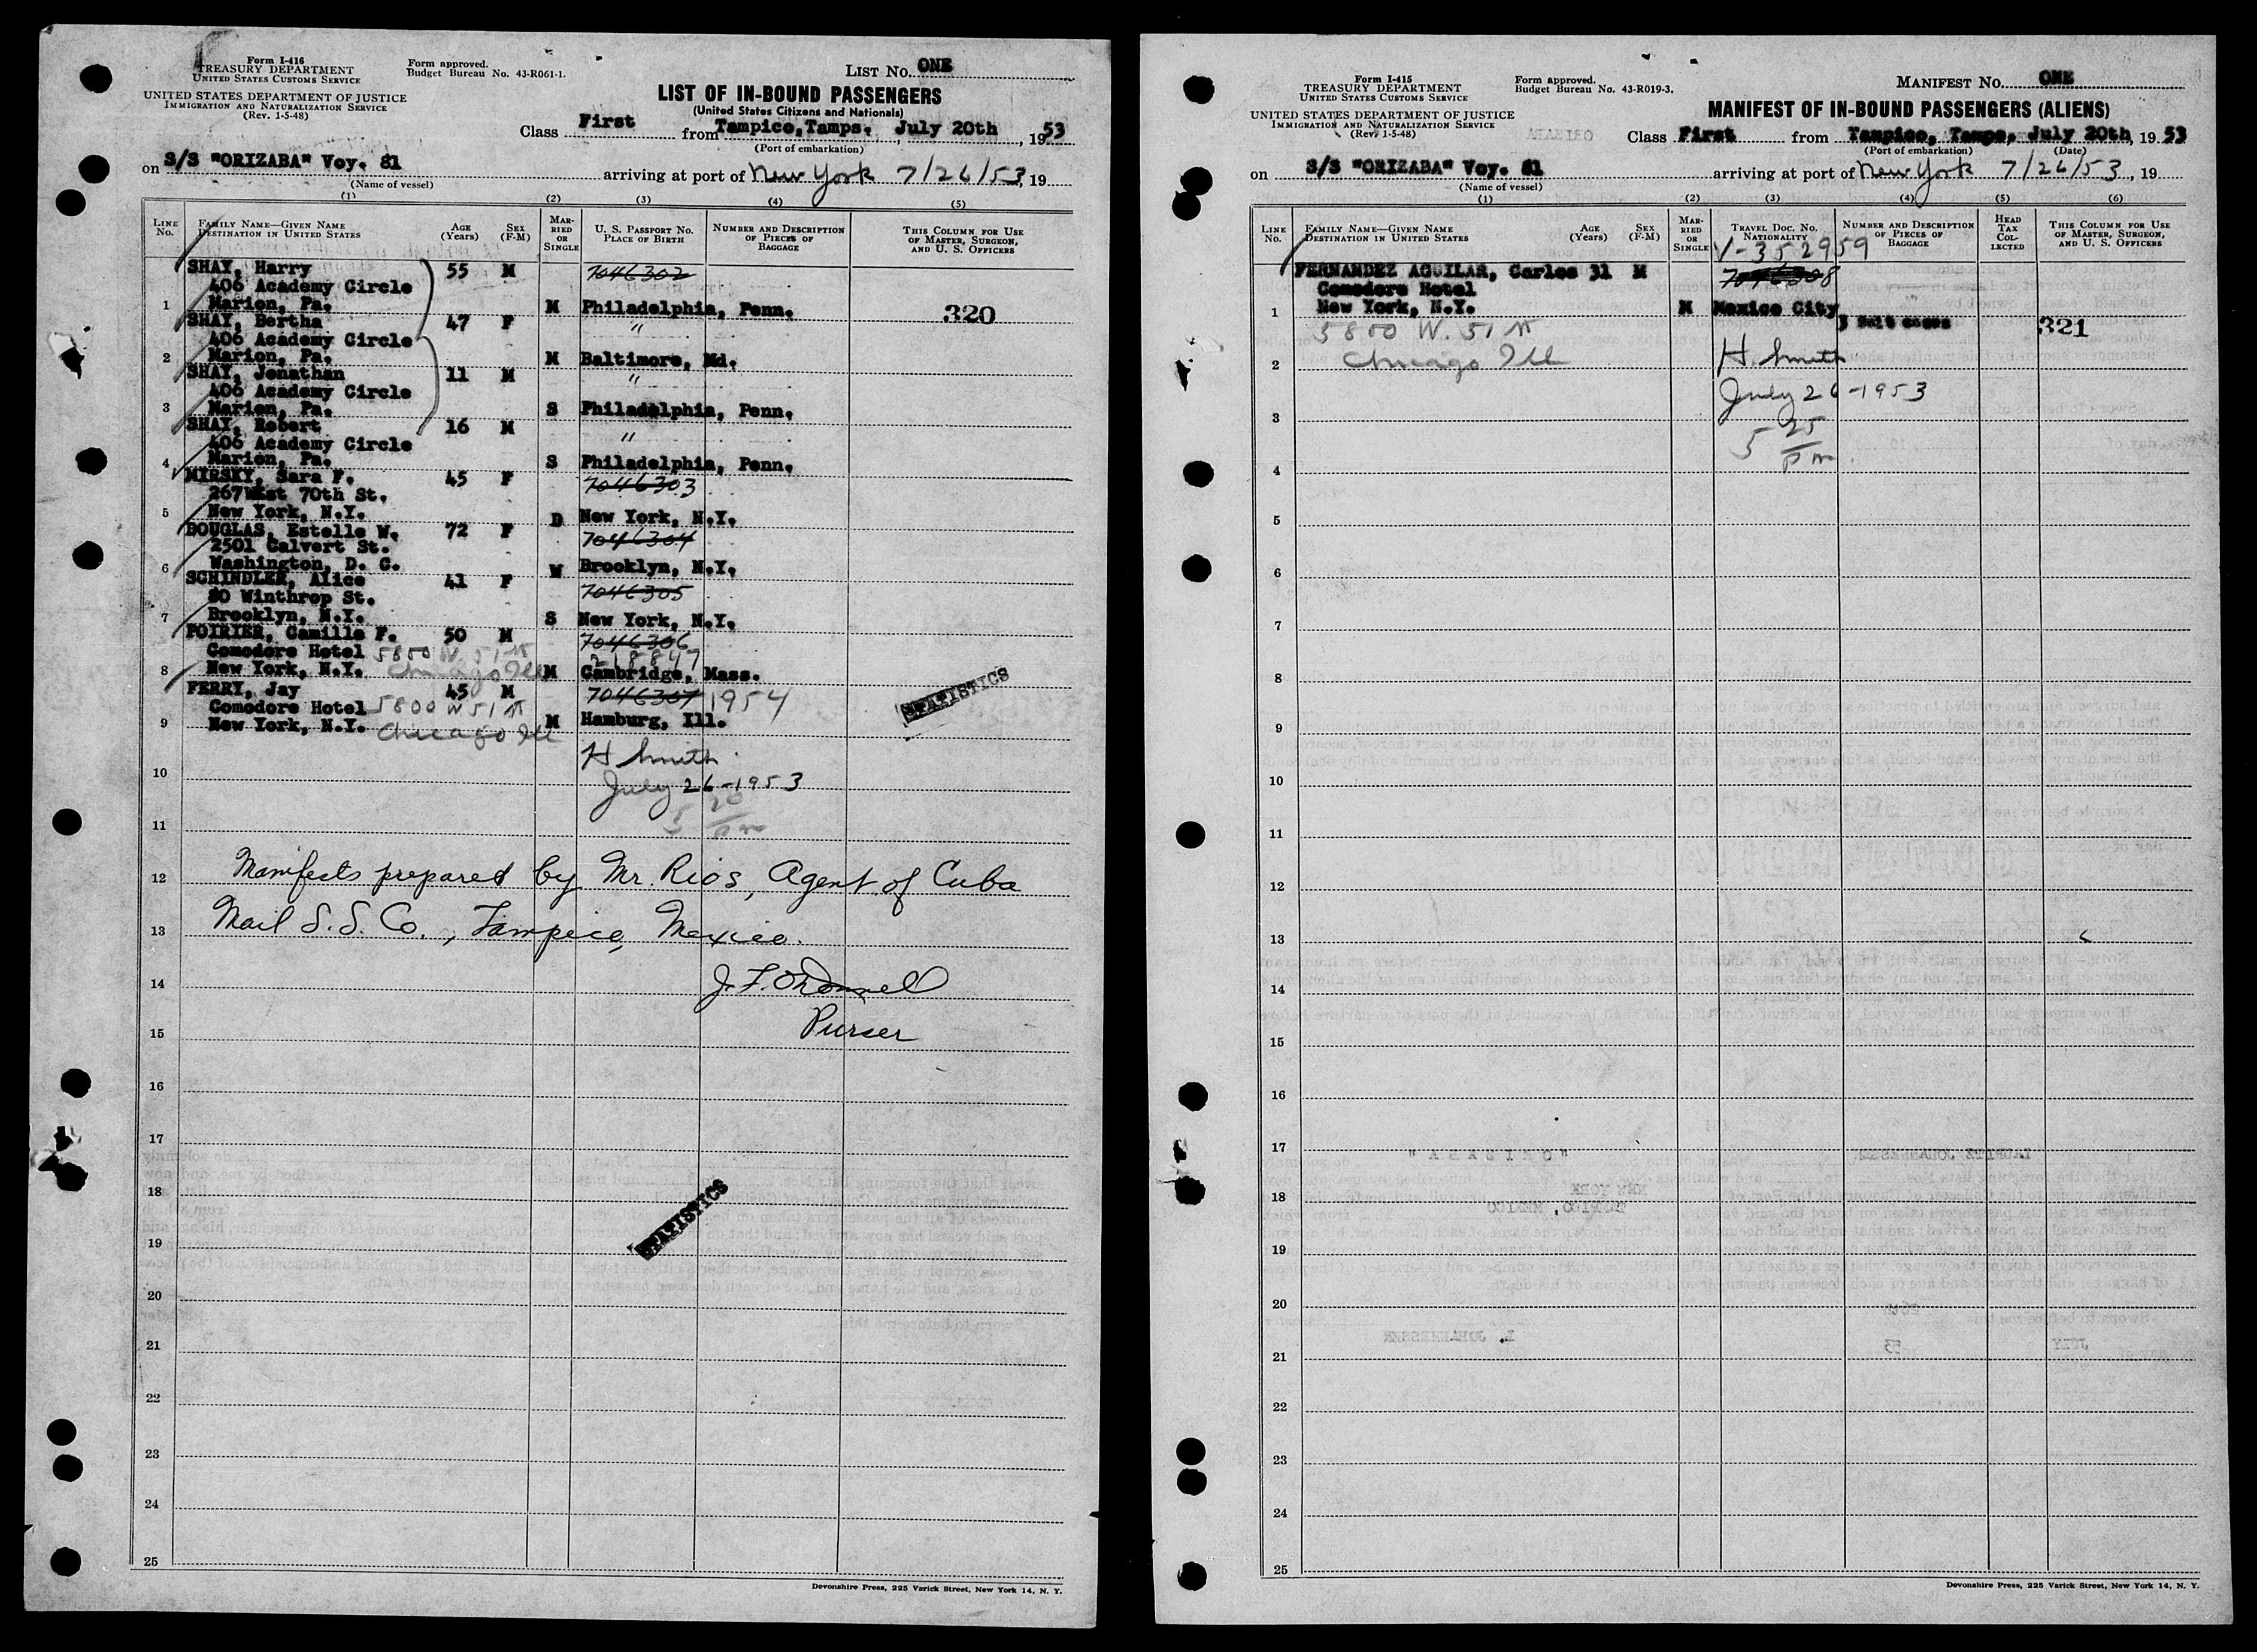 Form I-416
TREASURY DEPARTMENT
UNITED STATES CUSTOMS SERVICE
Form approved.
Budget Bureau No. 43-R061-1.
LIST NO. ONE
UNITED STATES DEPARTMENT OF JUSTICE
IMMIGRATION AND NATURALIZATION SERVICE
(Rev. 1-5-48)
LIST OF IN-BOUND PASSENGERS
(United States Citizens and Nationals)
Class First from Tampico, Tamps. July 20th, 1953
(Port of embarkation)
on S/S "ORIZABA" Voy. 81 arriving at port of New York 7/26/53, 19
(Name of vessel)
(1) (2) (3) (4) (5)
LINE No. FAMILY NAME—GIVEN NAME DESTINATION IN UNITED STATES AGE (Years) SEX (F-M) MARRIED OR SINGLE U. S. PASSPORT NO. PLACE OF BIRTH NUMBER AND DESCRIPTION OF PIECES OF BAGGAGE THIS COLUMN FOR USE OF MASTER, SURGEON, AND U. S. OFFICERS
SHAY, Harry 55 M 7046302
406 Academy Circle
1 Marion, Pa. M Philadelphia, Penn. 320
SHAY, Bertha 47 F "
406 Academy Circle
2 Marion, Pa. M Baltimore, Md.
SHAY, Jonathan 11 M "
406 Academy Circle
3 Marion, Pa. S Philadelphia, Penn.
SHAY, Robert 16 M "
406 Academy Circle
4 Marion, Pa. S Philadelphia, Penn.
MIRSKY, Sara F. 45 F 7046303
267 West 70th St.
5 New York, N.Y. D New York, N.Y.
DOUGLAS, Estelle W. 72 F 7046304
2501 Calvert St.
6 Washington, D. C. W Brooklyn, N.Y.
SCHINDLER, Alice 41 F 7046305
80 Winthrop St.
7 Brooklyn, N.Y. S New York, N.Y.
POIRIER, Camille F. 50 M 7046306
Comodore Hotel 5800 W. 51 st 218847
8 New York, N.Y. Chicago Ill M Cambridge, Mass.
FERRY, Jay 45 M 7046307 1954
Comodore Hotel 5800 W 51 st
9 New York, N.Y. Chicago Ill M Hamburg, Ill.
STATISTICS
H Smith
10 July 26-1953
5 20 pm
11
12 Manifests prepared by Mr. Rios, Agent of Cuba
13 Mail S.S. Co., Tampico, Mexico.
14 J. F. O'Donnell
15 Purser
16
17
18
STATISTICS
19
20
21
22
23
24
25
Devonshire Press, 225 Varick Street, New York 14, N. Y.
Form I-415
TREASURY DEPARTMENT
UNITED STATES CUSTOMS SERVICE
Form approved.
Budget Bureau No. 43-R019-3.
MANIFEST NO. ONE
UNITED STATES DEPARTMENT OF JUSTICE
IMMIGRATION AND NATURALIZATION SERVICE
(Rev. 1-5-48)
MANIFEST OF IN-BOUND PASSENGERS (ALIENS)
Class First from Tampico, Tamps, July 20th, 1953
(Port of embarkation) (Date)
on S/S "ORIZABA" Voy. 81 arriving at port of New York 7/26/53, 19
(Name of vessel)
(1) (2) (3) (4) (5) (6)
LINE No. FAMILY NAME—GIVEN NAME DESTINATION IN UNITED STATES AGE (Years) SEX (F-M) MARRIED OR SINGLE TRAVEL DOC. NO. NATIONALITY NUMBER AND DESCRIPTION OF PIECES OF BAGGAGE HEAD TAX COLLECTED THIS COLUMN FOR USE OF MASTER, SURGEON, AND U. S. OFFICERS
V-352959
FERNANDEZ AGUILAR, Carlos 31 M 7046308
Comodore Hotel
1 New York, N.Y. M Mexico City 3 Suit cases 321
5800 W. 51 st
2 Chicago Ill H. Smith
July 26-1953
3 5 25 pm
4
5
6
7
8
9
10
11
12
13
14
15
16
17
18
19
20
21
22
23
24
25
Devonshire Press, 225 Varick Street, New York 14, N. Y.